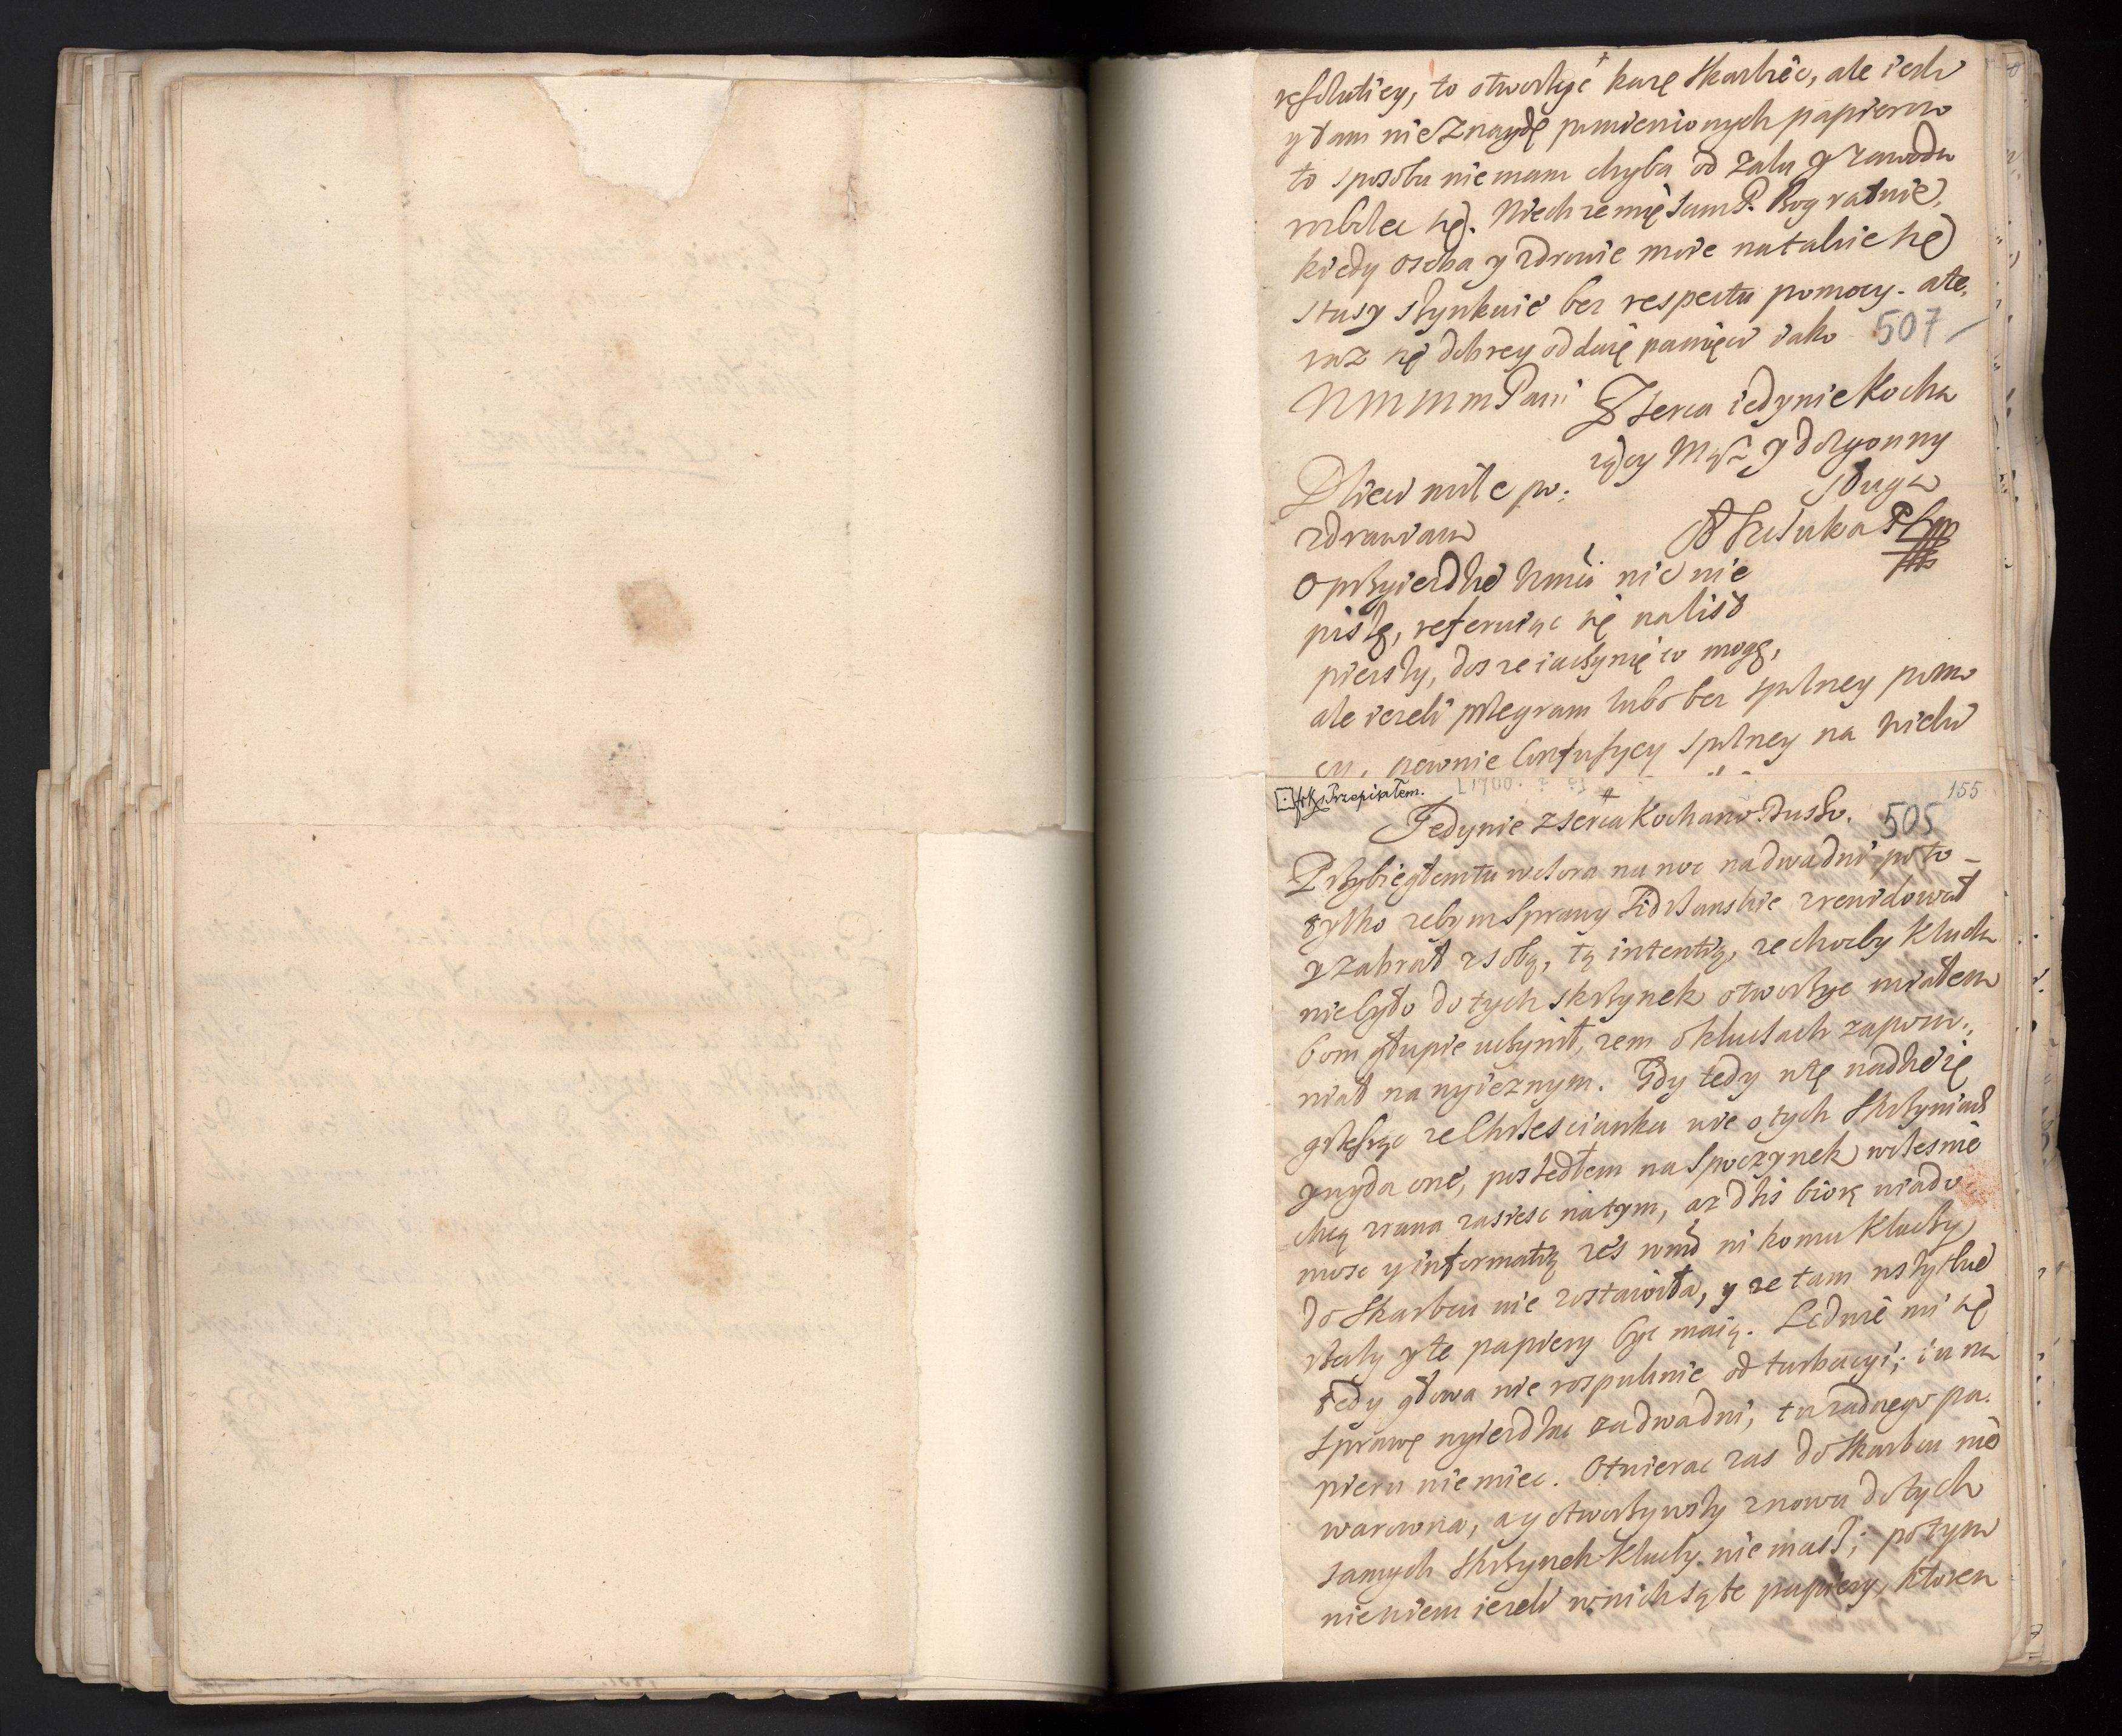 resolutiey, to otworzyć karę Skarbiec, ale iesli
y tam nie Znaydę pomienionych papierow
to sposobu nie mam chyba od zalu y zawodu
rozbolec się. Niech ze mię sam P. Bog ratuie,
kiedy osoba y zdrowie moie na takie się
sztuki bez respectu pomocy. a te,
raz się dobrey oddaię pamięci iako
507
M m m m Pani
Z serca iedynie Kocha
iący Mąż y dozgonny
sługa
Dzieci mile po:
zdrawiam
O przyiezdzie nic nie
piszę, referuiąc się na list
pierszy, dosc ze ia czynię co mogę,
ale iezeli przegram lubo bez spolney pomo
cy, pewnie Confuzyey spolney na wieki
Przepisałem.
155
Jedynie z serca Kochana Duszo.
505
Przybiegłem tu wczora na noc na dwa dni po to
tylko zebym Sprawy Zidiczanskie zrewidował
y zabrał z sobą, tą intentią, ze choc by Klucza
nie było do tych skrzynek otworzyc miałem
bom głupie uczynił, zem o kluczach zapom:
niał na wyieznym. Gdy tedy w tę nadzieię
grzesząc ze Chrzescianka wie o tych Skrzyniach
y wyda one, poszedłem na Spoczynek wczesnie
chcą z rana zasiesc na tym, az dzis biorę wiado
mosc y informatią zes wmć ni komu Kluczy
do Skarbcu nie zostawiła, y ze tam wszytkie
rzeczy y te papiery byc maią. Ledwie mi się
tedy głowa nie rospuknie od turbacyi; ia na
Sprawę wyiezdzac za dwa dni, tu zadnego pa:
pieru nie miec. Otwierac zas do Skarbcu nie
warowna, a y otworzywszy znowu do tych
samych Skrzynek Kluczy nie masz; po tym
nie wiem iezeli w nich są te papiery, ktoren